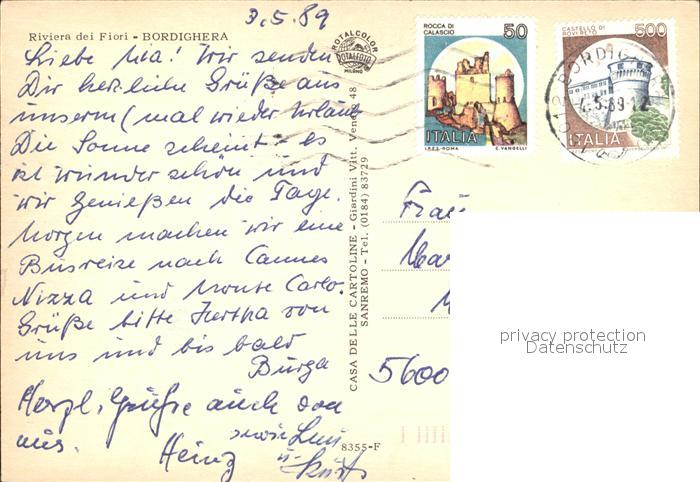 3.5.89
Riviera dei Fiori - BORDIGHERA
Liebe Mia! Wir senden
Dir herzliche Grüße aus
unserm (mal wieder Urlaub
Die Sonne scheint - es
ist wunderschön und
wir genießen die Tage.
Morgen machen wir eine
Busreise nach Cannes
Nizza und Monte Carlo.
Grüße bitte von
uns und bis bald
Burga
Herzl. Grüße auch von
mir. Heinz
sowie
u. Kurt
ROTALCOLOR
ROTALFOTO
MILANO
CASA DELLE CARTOLINE - Giardini Vitt. Veneto 48
SANREMO - Tel. (0184) 83729
8355-F
ROCCA DI
CALASCIO
50
ITALIA
I.P.Z.S. ROMA E. VANGELLI
CASTELLO DI
ROVERETO
500
ITALIA
BORDIG
4.5.89-12
Frau
5600
privacy protection
Datenschutz